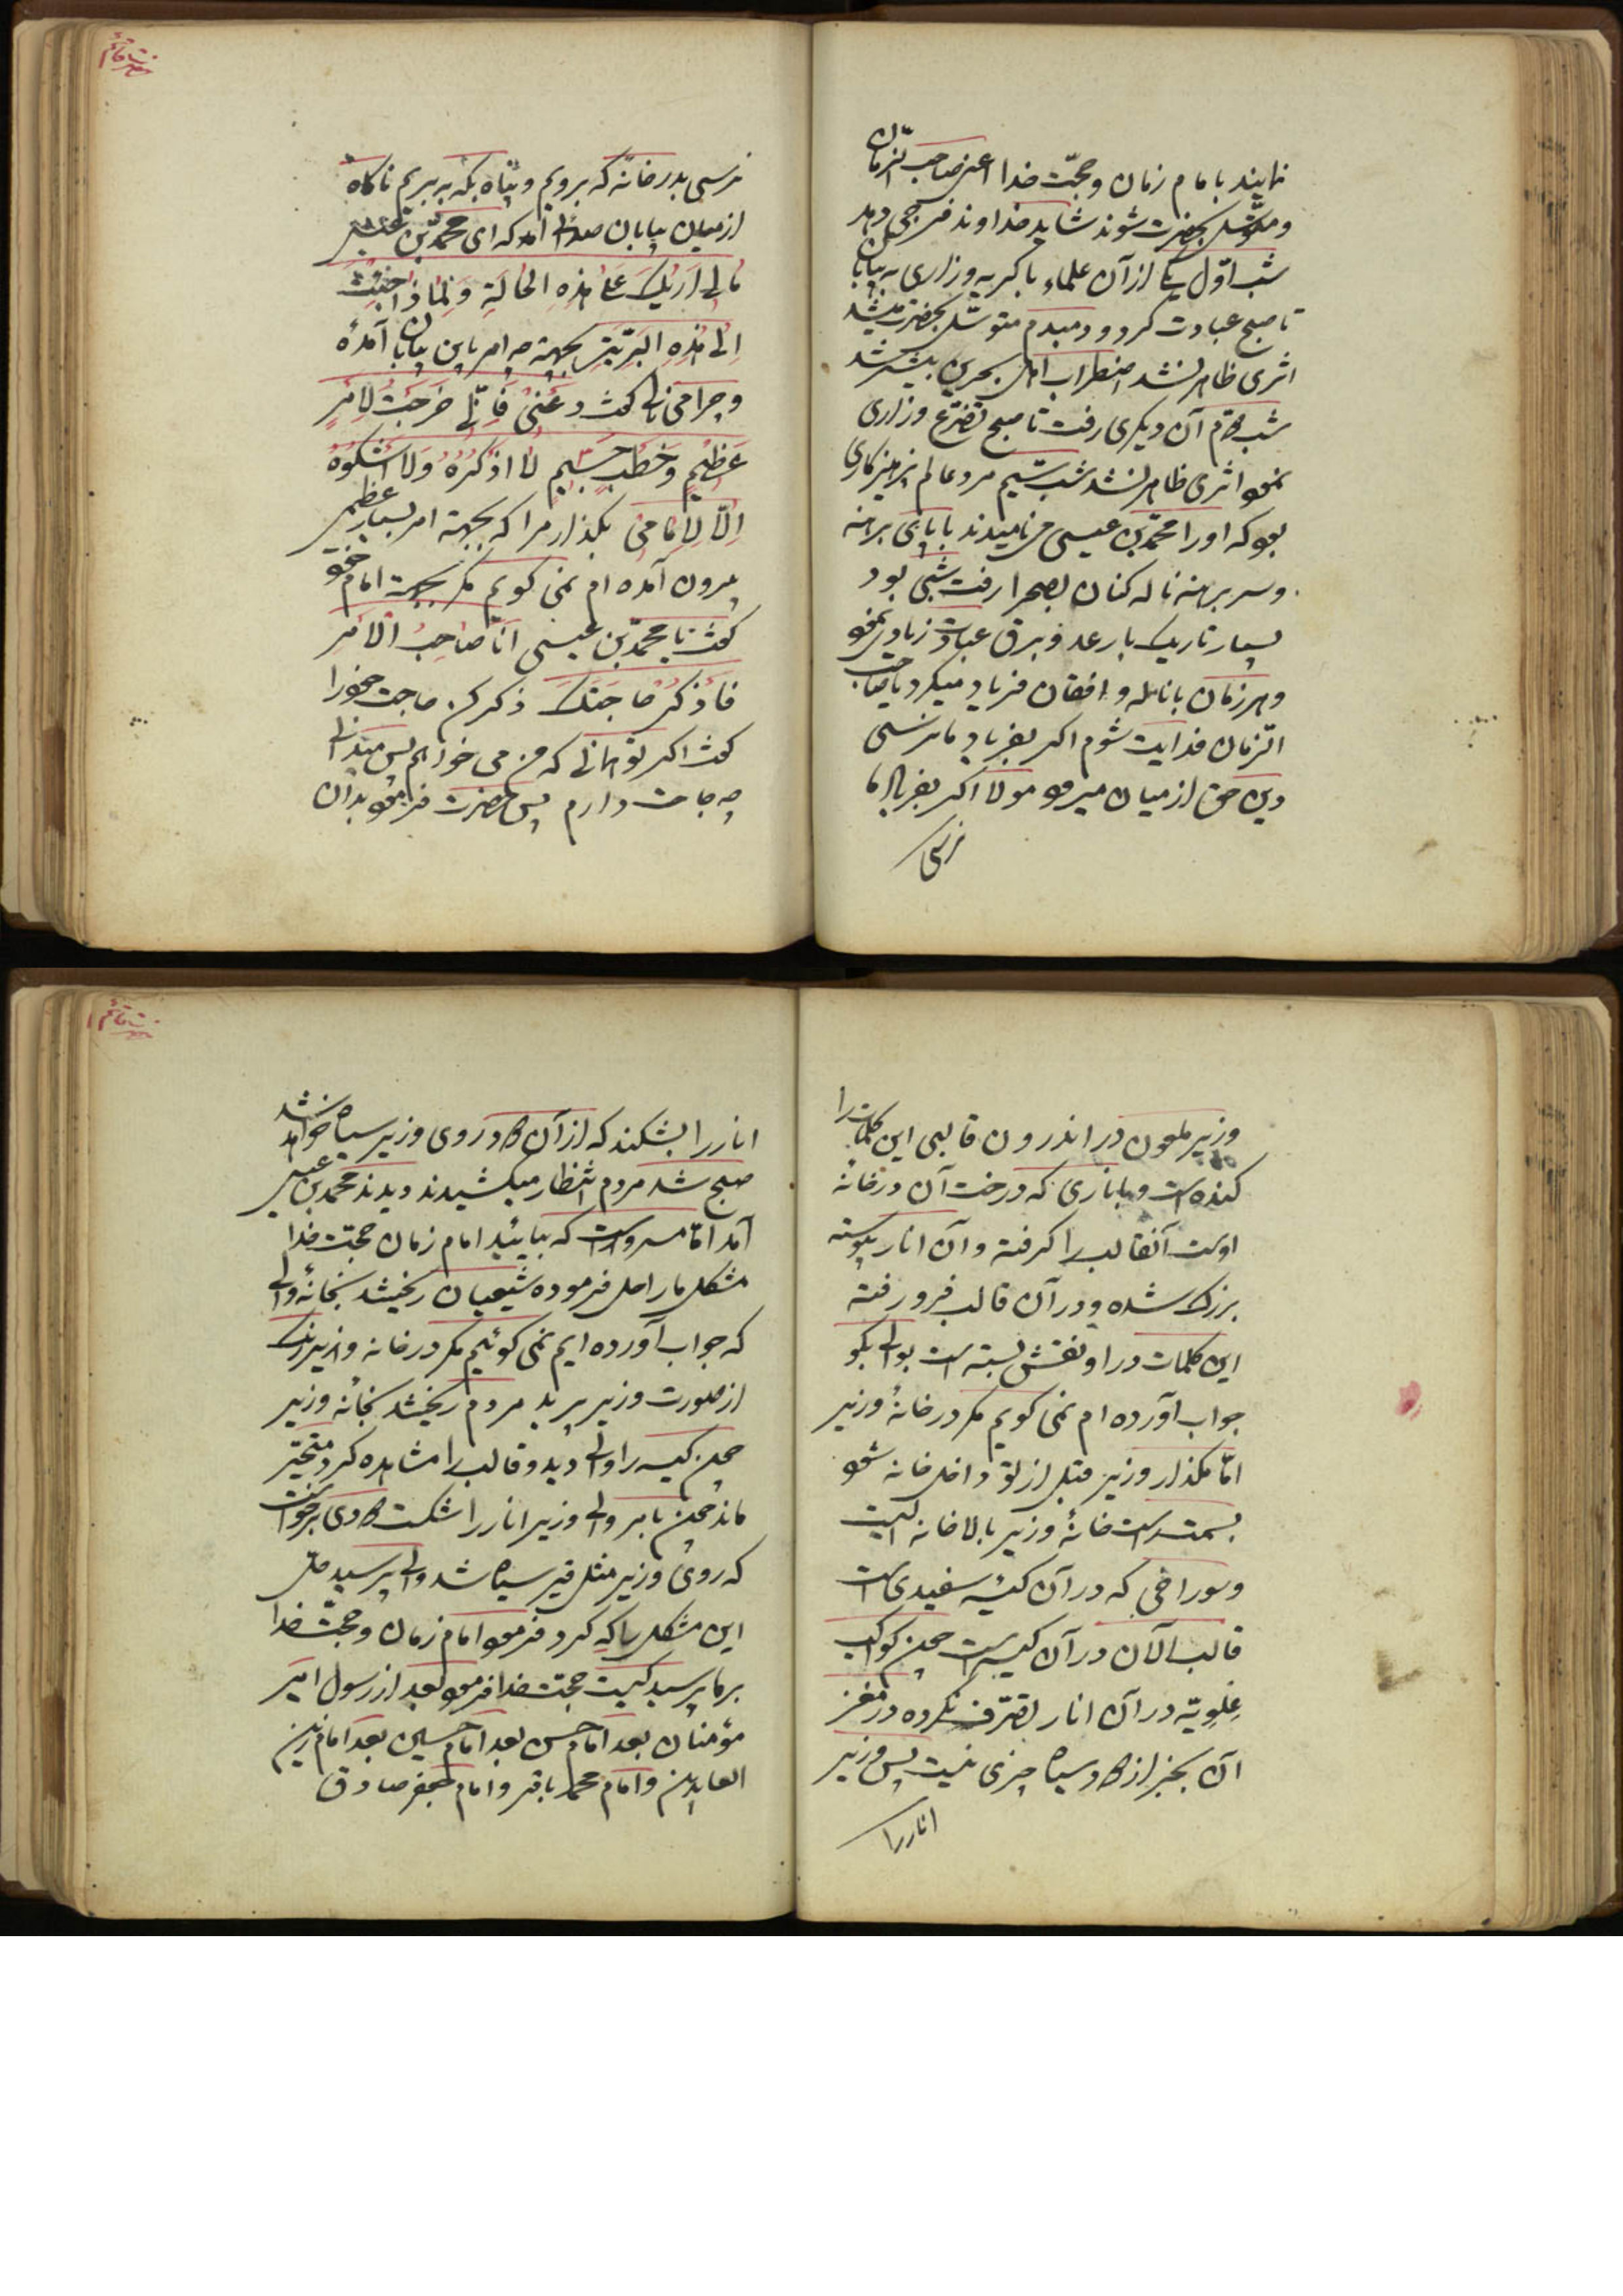 نمایند بامام زمان و حجّت خدا اعنی صاحب الزمان
و متوسّل بحضرت شوند شاید خداوند فرجی دهد
شب اوّل یکی از آن علماء با گریه و زاری به بیابان
تا صبح عبادت کرد و دمبدم متوسّل بحضرت میشد
اثری ظاهر نشد اضطراب اهل بحرین بیشتر شد
شب دوّم آن دیگری رفت تا صبح تضرّع و زاری
نمود اثری ظاهر نشد شب سیّم مرد عالم پرهیزکاری
بود که او را محمّد بن عیسی می نامیدند با پای برهنه
و سر برهنه ناله کنان بصحرا رفت شبی بود
بسیار تاریک با رعد و برق عبادت زیادی نمود
و هر زمان با ناله و افغان فریاد میکرد یا صاحب
الزمان فدایت شوم اگر بفریاد ما نرسی
دین حق از میان میرود مولا اگر بفریاد ما
نرسی
حضرت قائم
نرسی بدر خانه که برویم و پناه بکه به بریم ناگاه
از میان بیابان صدائی آمد که ای محمّد بن عیسی
مٰالی اَریٰکَ عَلیٰ هٰذِهِ الحٰالَةِ وَ لِمٰاذٰا خَرَجْتَ
اِلیٰ هٰذِهِ البَرّیَّةِ بجهة چه امر باین بیابان آمدهٔ
و چرا می نالی گفت دَعْنی فَاِنّی خَرَجْتُ لِاَمْرٍ
عَظیٖمٍ وَ خَطْبٍ جَسیٖمٍ لٰا اَذْکُرُهُ وَ لٰا اَشْکُوهُ
اِلّٰا لِاِمٰامیٖ بگذار مرا که بجهة امر بسیار عظیمی
بیرون آمده ام نمی گویم مگر بجهة امام خود
گفت یٰا محمّد بن عیسی اَنَا صٰاحِبُ الْاَمْرِ
فَاذْکُرْ حٰاجَتَکَ ذکر کن حاجت خود را
گفت اگر تو همانی که من می خواهم پس میدانی
چه حاجت دارم پس حضرت فرمود بدان
وزیر ملعون در اندرون قالبی این کلمات را
کنده است و باناری که درخت آن در خانهٔ
اوست آنقالب را گرفته و آن انار پیوسته
بزرگ شده و در آن قالب فرو رفته
این کلمات در او نقش بسته است بوالی بگو
جواب آورده ام نمی گویم مگر در خانهٔ وزیر
امّا مگذار وزیر قبل از تو داخل خانه شود
بسمت راست خانهٔ وزیر بالاخانه ایست
و سوراخی که در آن کیسهٔ سفیدی است
قالب الآن در آن کیسه است چون کواکب
عِلویّه در آن انار تصرّف نکرده در مغز
آن بجز از دود سیاه چیزی نیست پس وزیر
انار را
حضرت قائم
انار را بشکند که از آن دود روی وزیر سیاه خواهد شد
صبح شد مردم انتظار میکشیدند دیدند محمد بن عیسی
آمد امّا مسرور است که بیائید امام زمان حجّت خدا
مشکل ما را حل فرموده شیعیان ریختند بخانهٔ والی
که جواب آورده ایم نمی گوئیم مگر در خانه وزیر رنگ
از صورت وزیر پرید مردم ریختند بخانه وزیر
چون کیسه را والی دید و قالب را مشاهده کرد متحیّر
ماند چون بامر والی وزیر انار را شکست دودی برخواست
که روی وزیر مثل قیر سیاه شد والی پرسید حلّ
این مشکل را که کرد فرمود امام زمان و حجّت خدا
بر ما پرسید کیست حجّت خدا فرمود بعد از رسول امیر
مؤمنان بعد امام حسن بعد امام حسین بعد امام زین
العابدین و امام محمد باقر و امام جعفر صادق